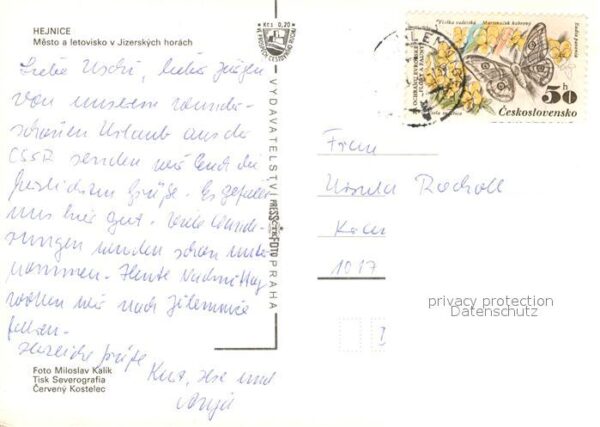 HEJNICE
Město a letovisko v Jizerských horách
Kčs 0,20
Liebe Uschi, lieber Jürgen
von unserem wunder-
schönen Urlaub aus der
CSSR senden wir Euch die
herzlichsten Grüße. Es gefällt
uns hier gut. Viele Wande-
rungen wurden schon unter-
nommen. Heute Nachmittag
wollen wir nach Jilemnice
fahren.
Herzliche Grüße
Kurt, und
Foto Miloslav Kalík
Tisk Severografia
Červený Kostelec
VYDAVATELSTVÍ PRESSFOTO PRAHA
50 h
Československo
Frau
Ursula
1017
privacy protection
Datenschutz